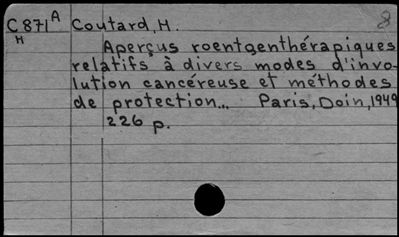 C871A Coutard, H. 8
H
Aperçus roentgenthérapiques
relatifs à divers modes d'invo-
lution cancéreuse et méthodes
de protection... Paris, Doin, 1949
226 p.